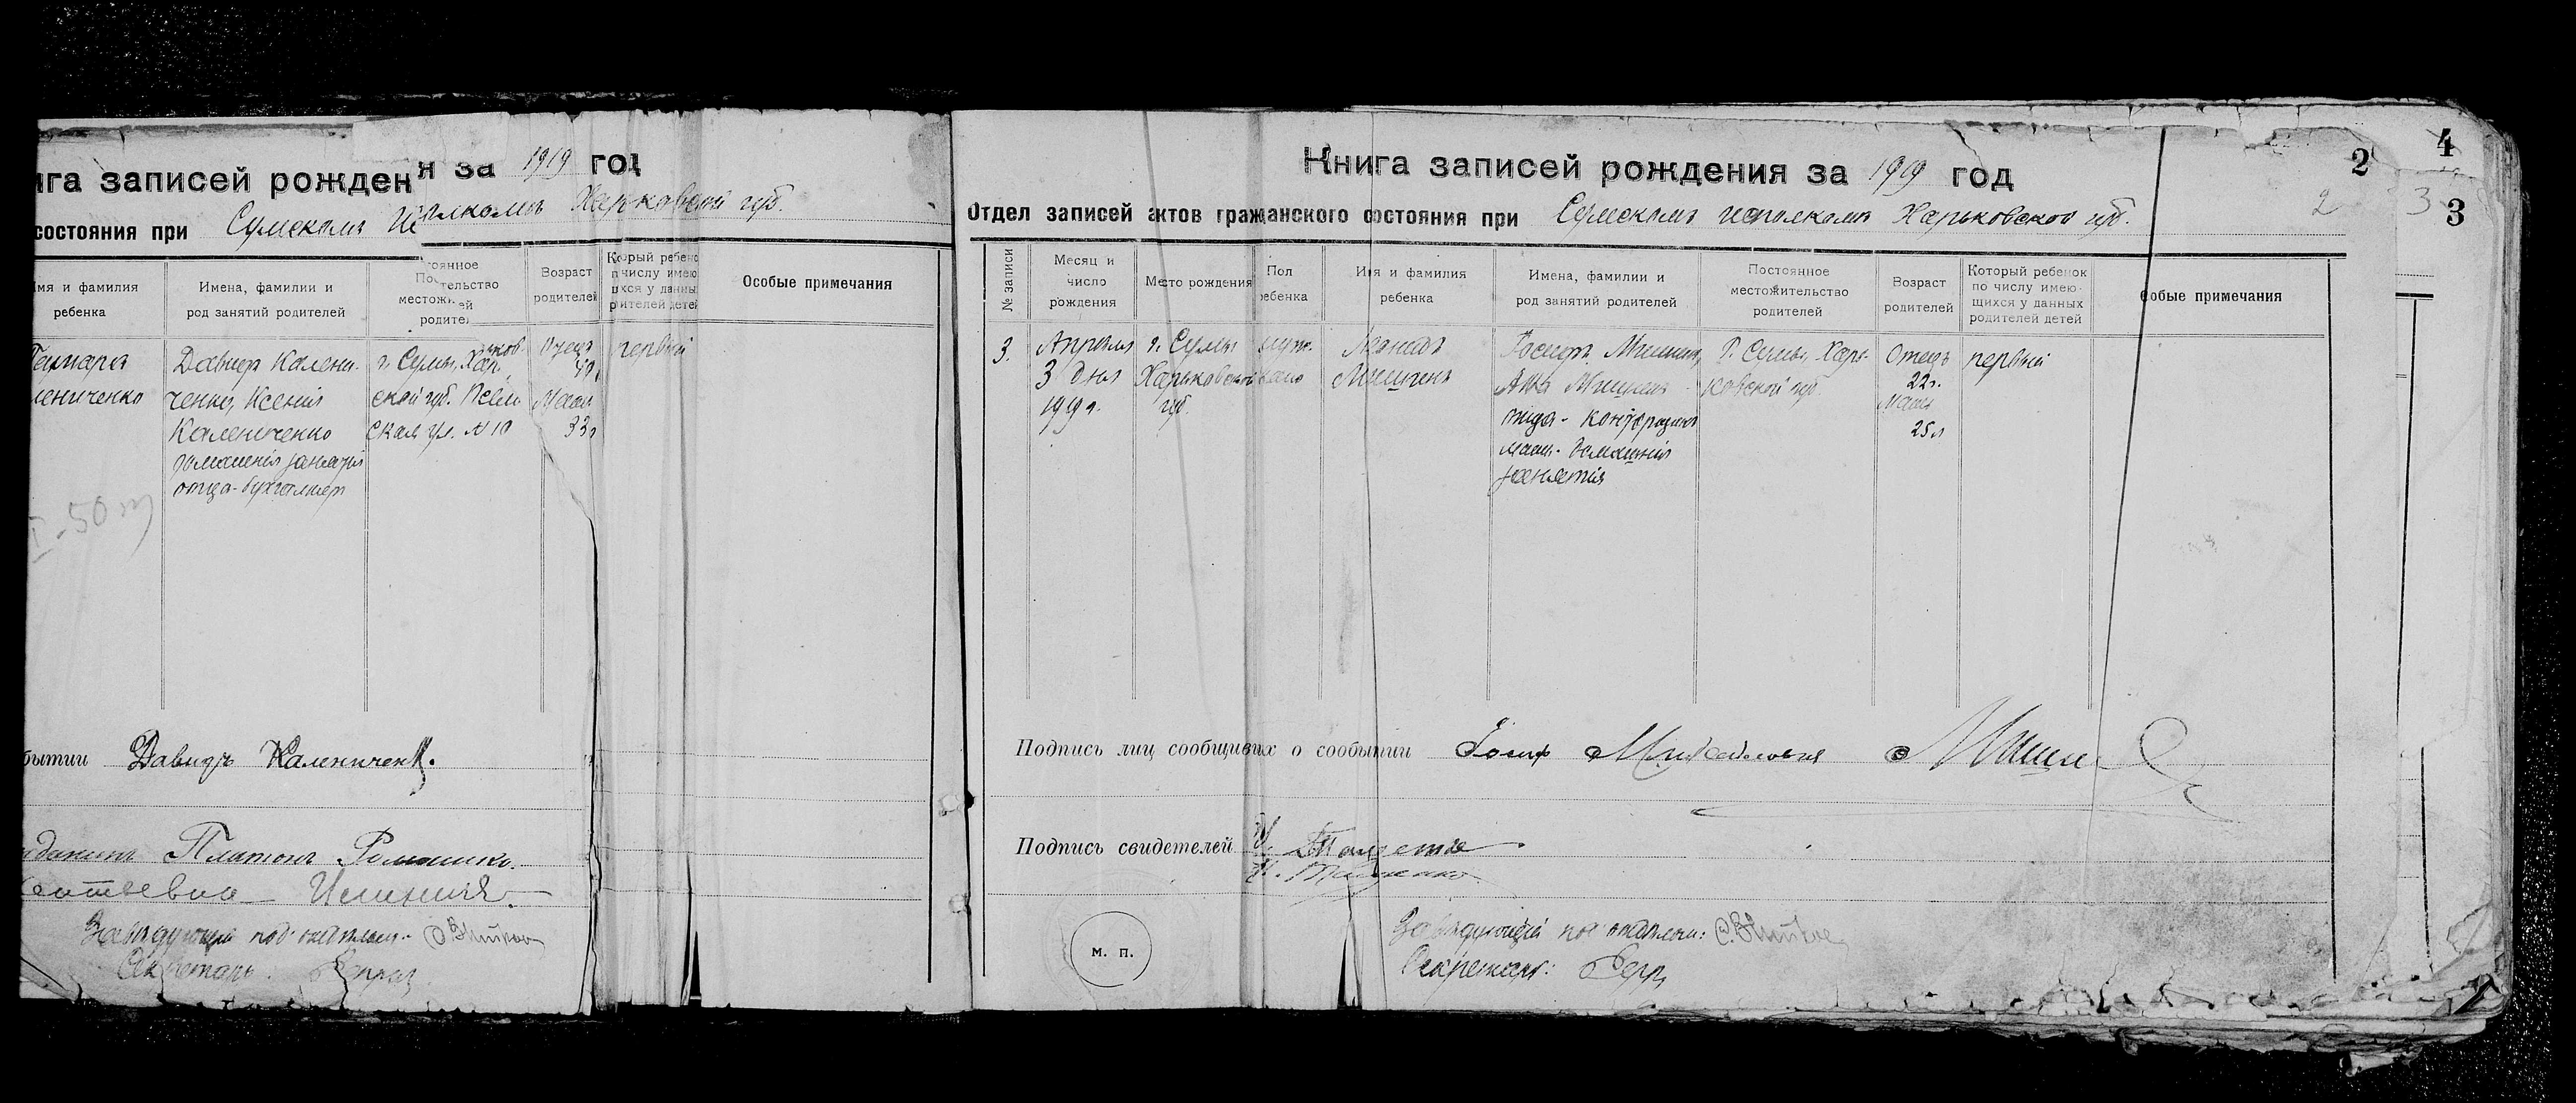 ига записей рожден
я за 1919 год
состояния при Сумскомъ Ис
полкомъ Харьковской губ.
Имя и фамилия
ребенка
Имена, фамилии и
род занятий родителей
тоянное
По тельство
местожи ей
родите
Возраст
родителей
Который ребенок
по числу имею
щихся у данных
родителей детей
Особые примечания
Тамара
лениченко
Давидъ Калени-
ченко, Ксенія
Калениченко
домашнія занятія
отца-бухгалтер
г. Сумы, Харь
ков
ской губ.
ская ул. № 10
Отецъ
Мать
33 л
первый
бытии Давидъ Калениченко.
Платонъ Ромашко.
Завѣдующій под'отдѣломъ:
Секретарь.
Книга записей рождения за 1919 год
2
4
2
3
3
Отдел записей актов гражданского состояния при Сумскомъ исполкомѣ Харьковской губ.
№ записи
Месяц и
число
рождения
Место рождения
Пол
ребенка
Имя и фамилия
ребенка
Имена, фамилии и
род занятий родителей
Постоянное
местожительство
родителей
Возраст
родителей
Который ребенок
по числу имею-
щихся у данных
родителей детей
собые примечания
3.
Апрѣля
3 дня
1919 г.
г. Сумы
Харьковской
губ.
муж.
Леонидъ
Мишинъ
Іосифъ Мишинъ,
Мишинъ
отца - конторщикъ
мать - домашнія
занятія
Г. Сумы, Харь-
ковской губ.
Отецъ
22 г.
Мать
25 л
первый
Подпись лиц сообщивших о сообытии Іосиф Михайловичъ Мишин
Подпись свидетелей
м. п.
Завѣдующій под'отдѣломъ:
Секретарь: